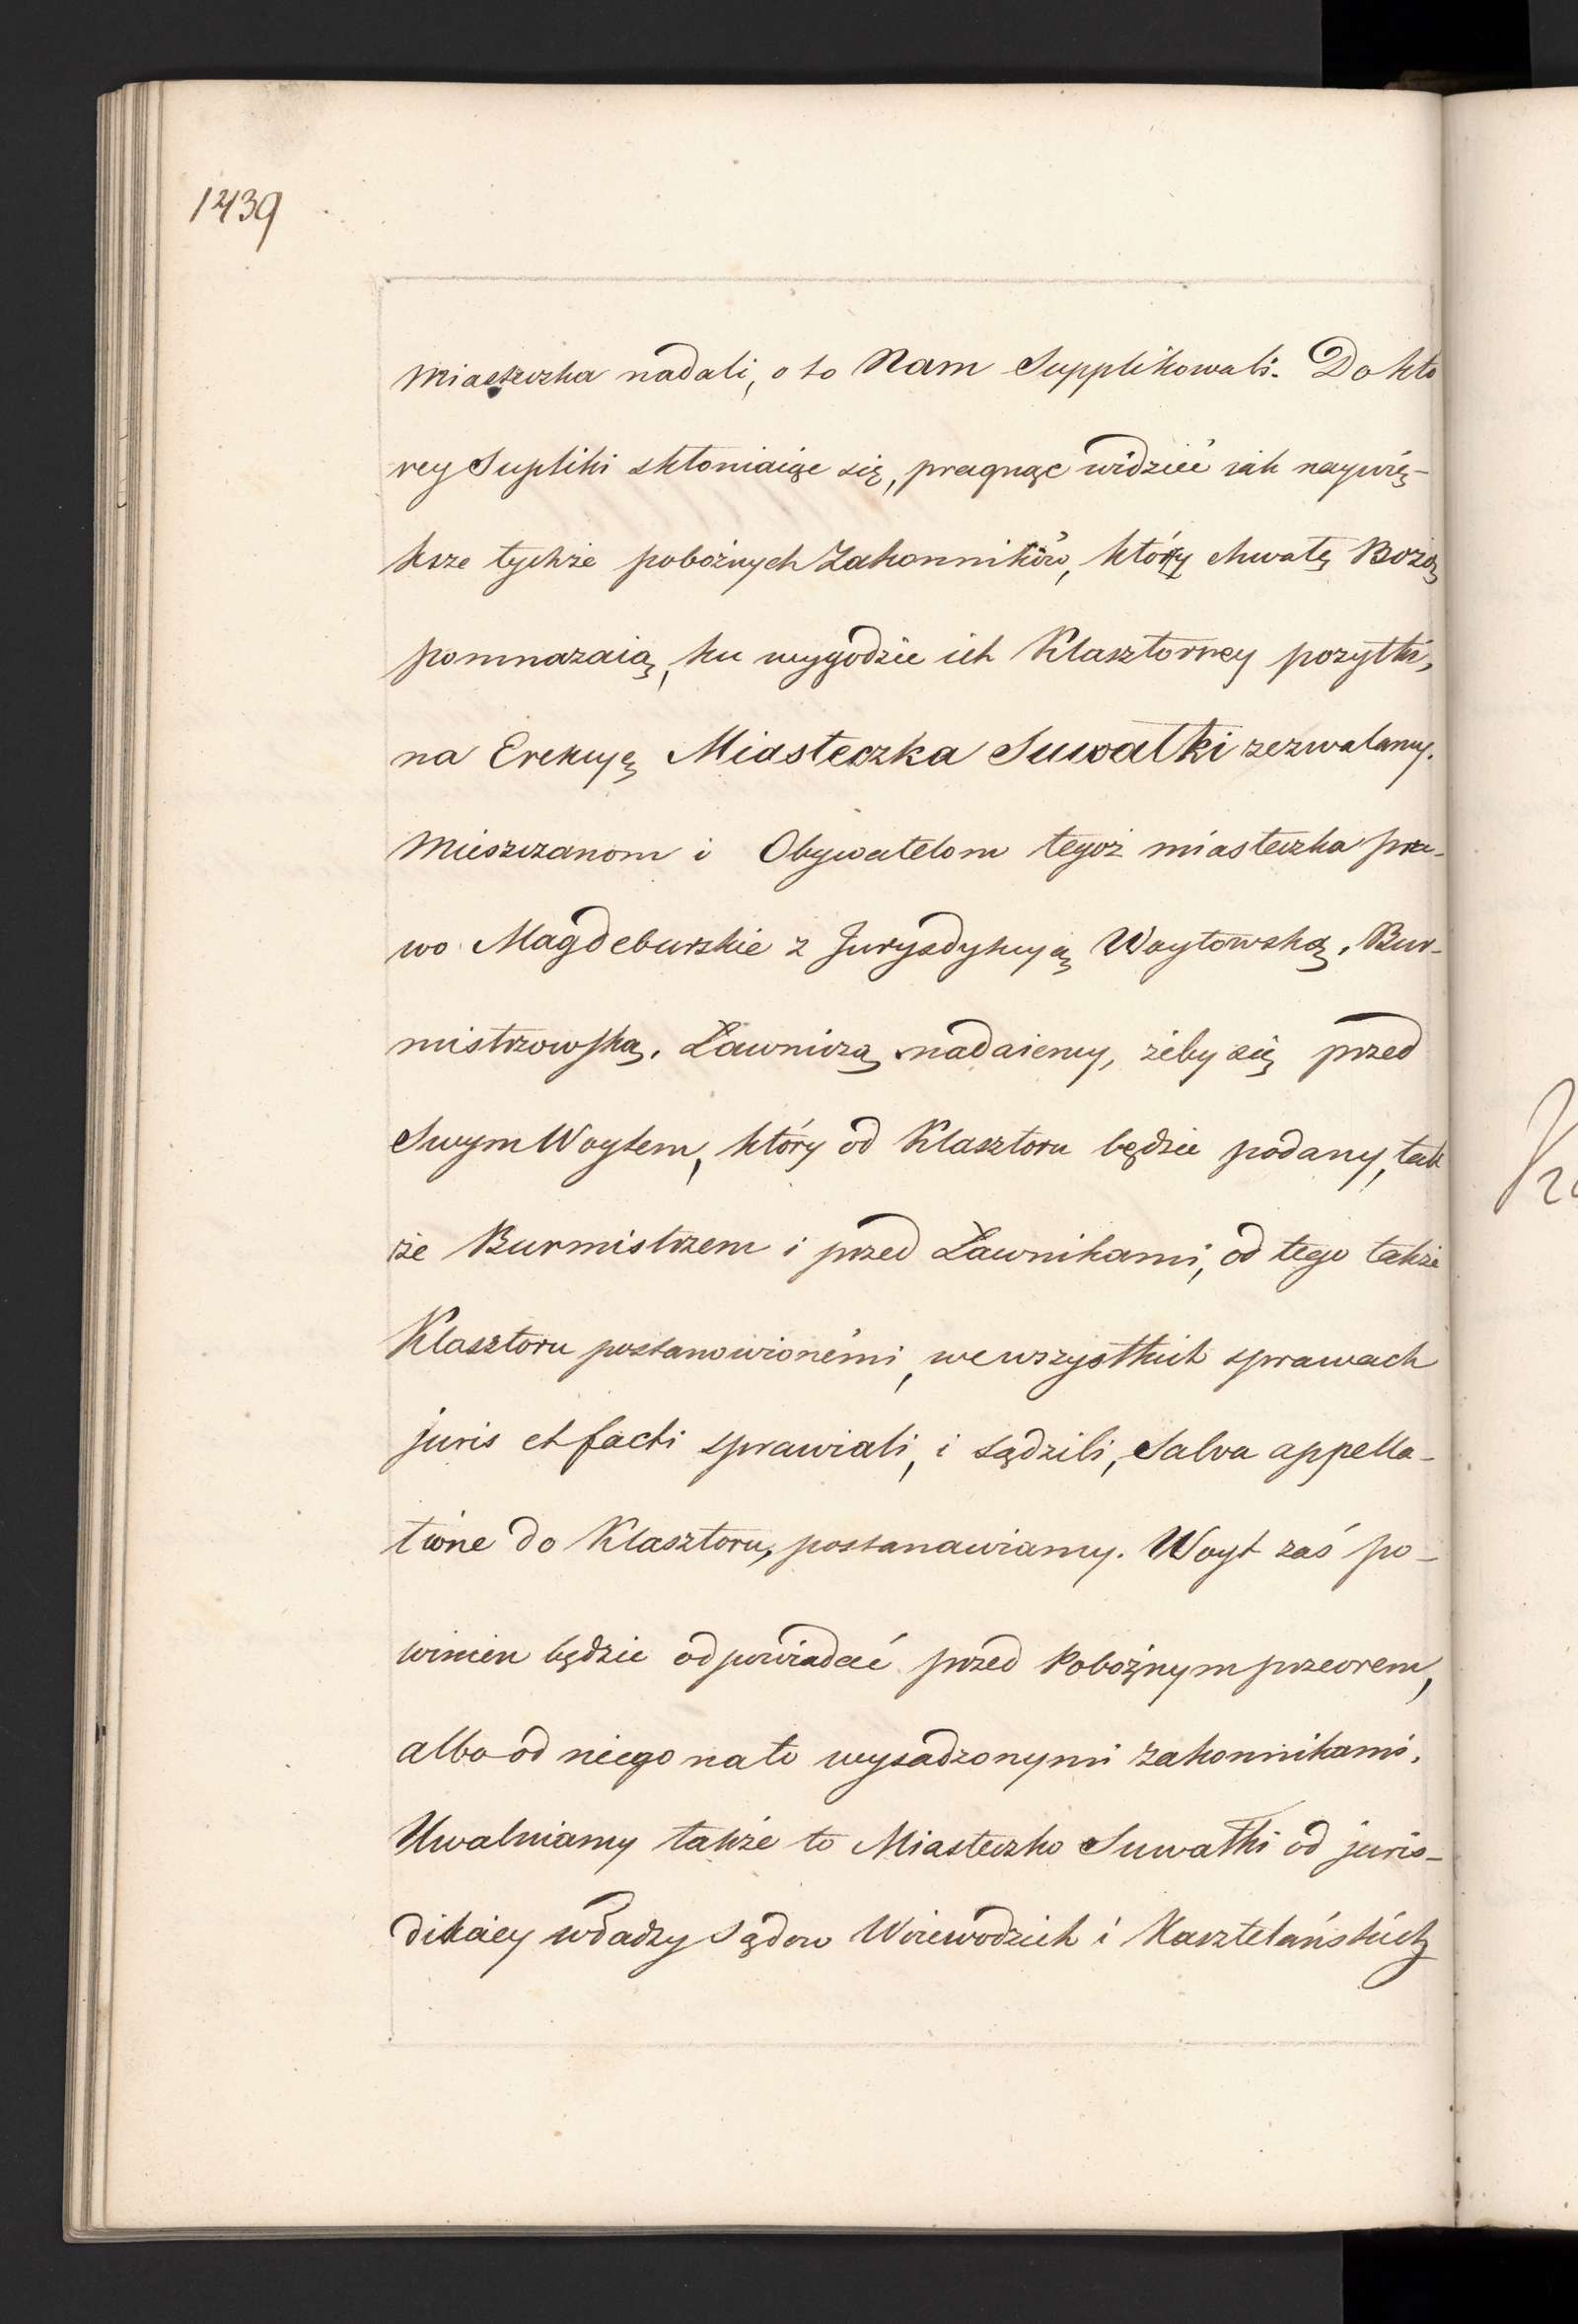 1439
Miasteczka nadali, o to Nam Supplikowali. Do któ
rey Supliki skłoniaiąc się, pragnąc widzieć iak naywię-
ksze tychże pobożnych Zakonników, którzy chwałę Bożą
pomnażaią, ku wygodzie ich Klasztorney pożytki,
na Erekcyę Miasteczka Suwałki zezwalamy.
Mieszczanom i Obywatelom tegoż miasteczka pra-
wo Magdeburskie z Jurysdykcyą Woytowską, Bur-
mistrzowską, Ławniczą nadaiemy, żeby się przed
Swym Woytem, który od Klasztoru będzie podany, tak
że Burmistrzem i przed Ławnikami, od tego także
Klasztoru postanowionémi, we wszystkich sprawach
juris et facti sprawiali, i sądzili, Salva appella-
tione do Klasztoru, postanawiamy. Woyt zaś po-
winien będzie odpowiadać przed Pobożnym przeorem,
albo od niego na to wysadzonymi zakonnikami.
Uwalniamy także to Miasteczko Suwałki od juris-
dikciey władzy Sądow Woiewodzich i Kasztelańskich